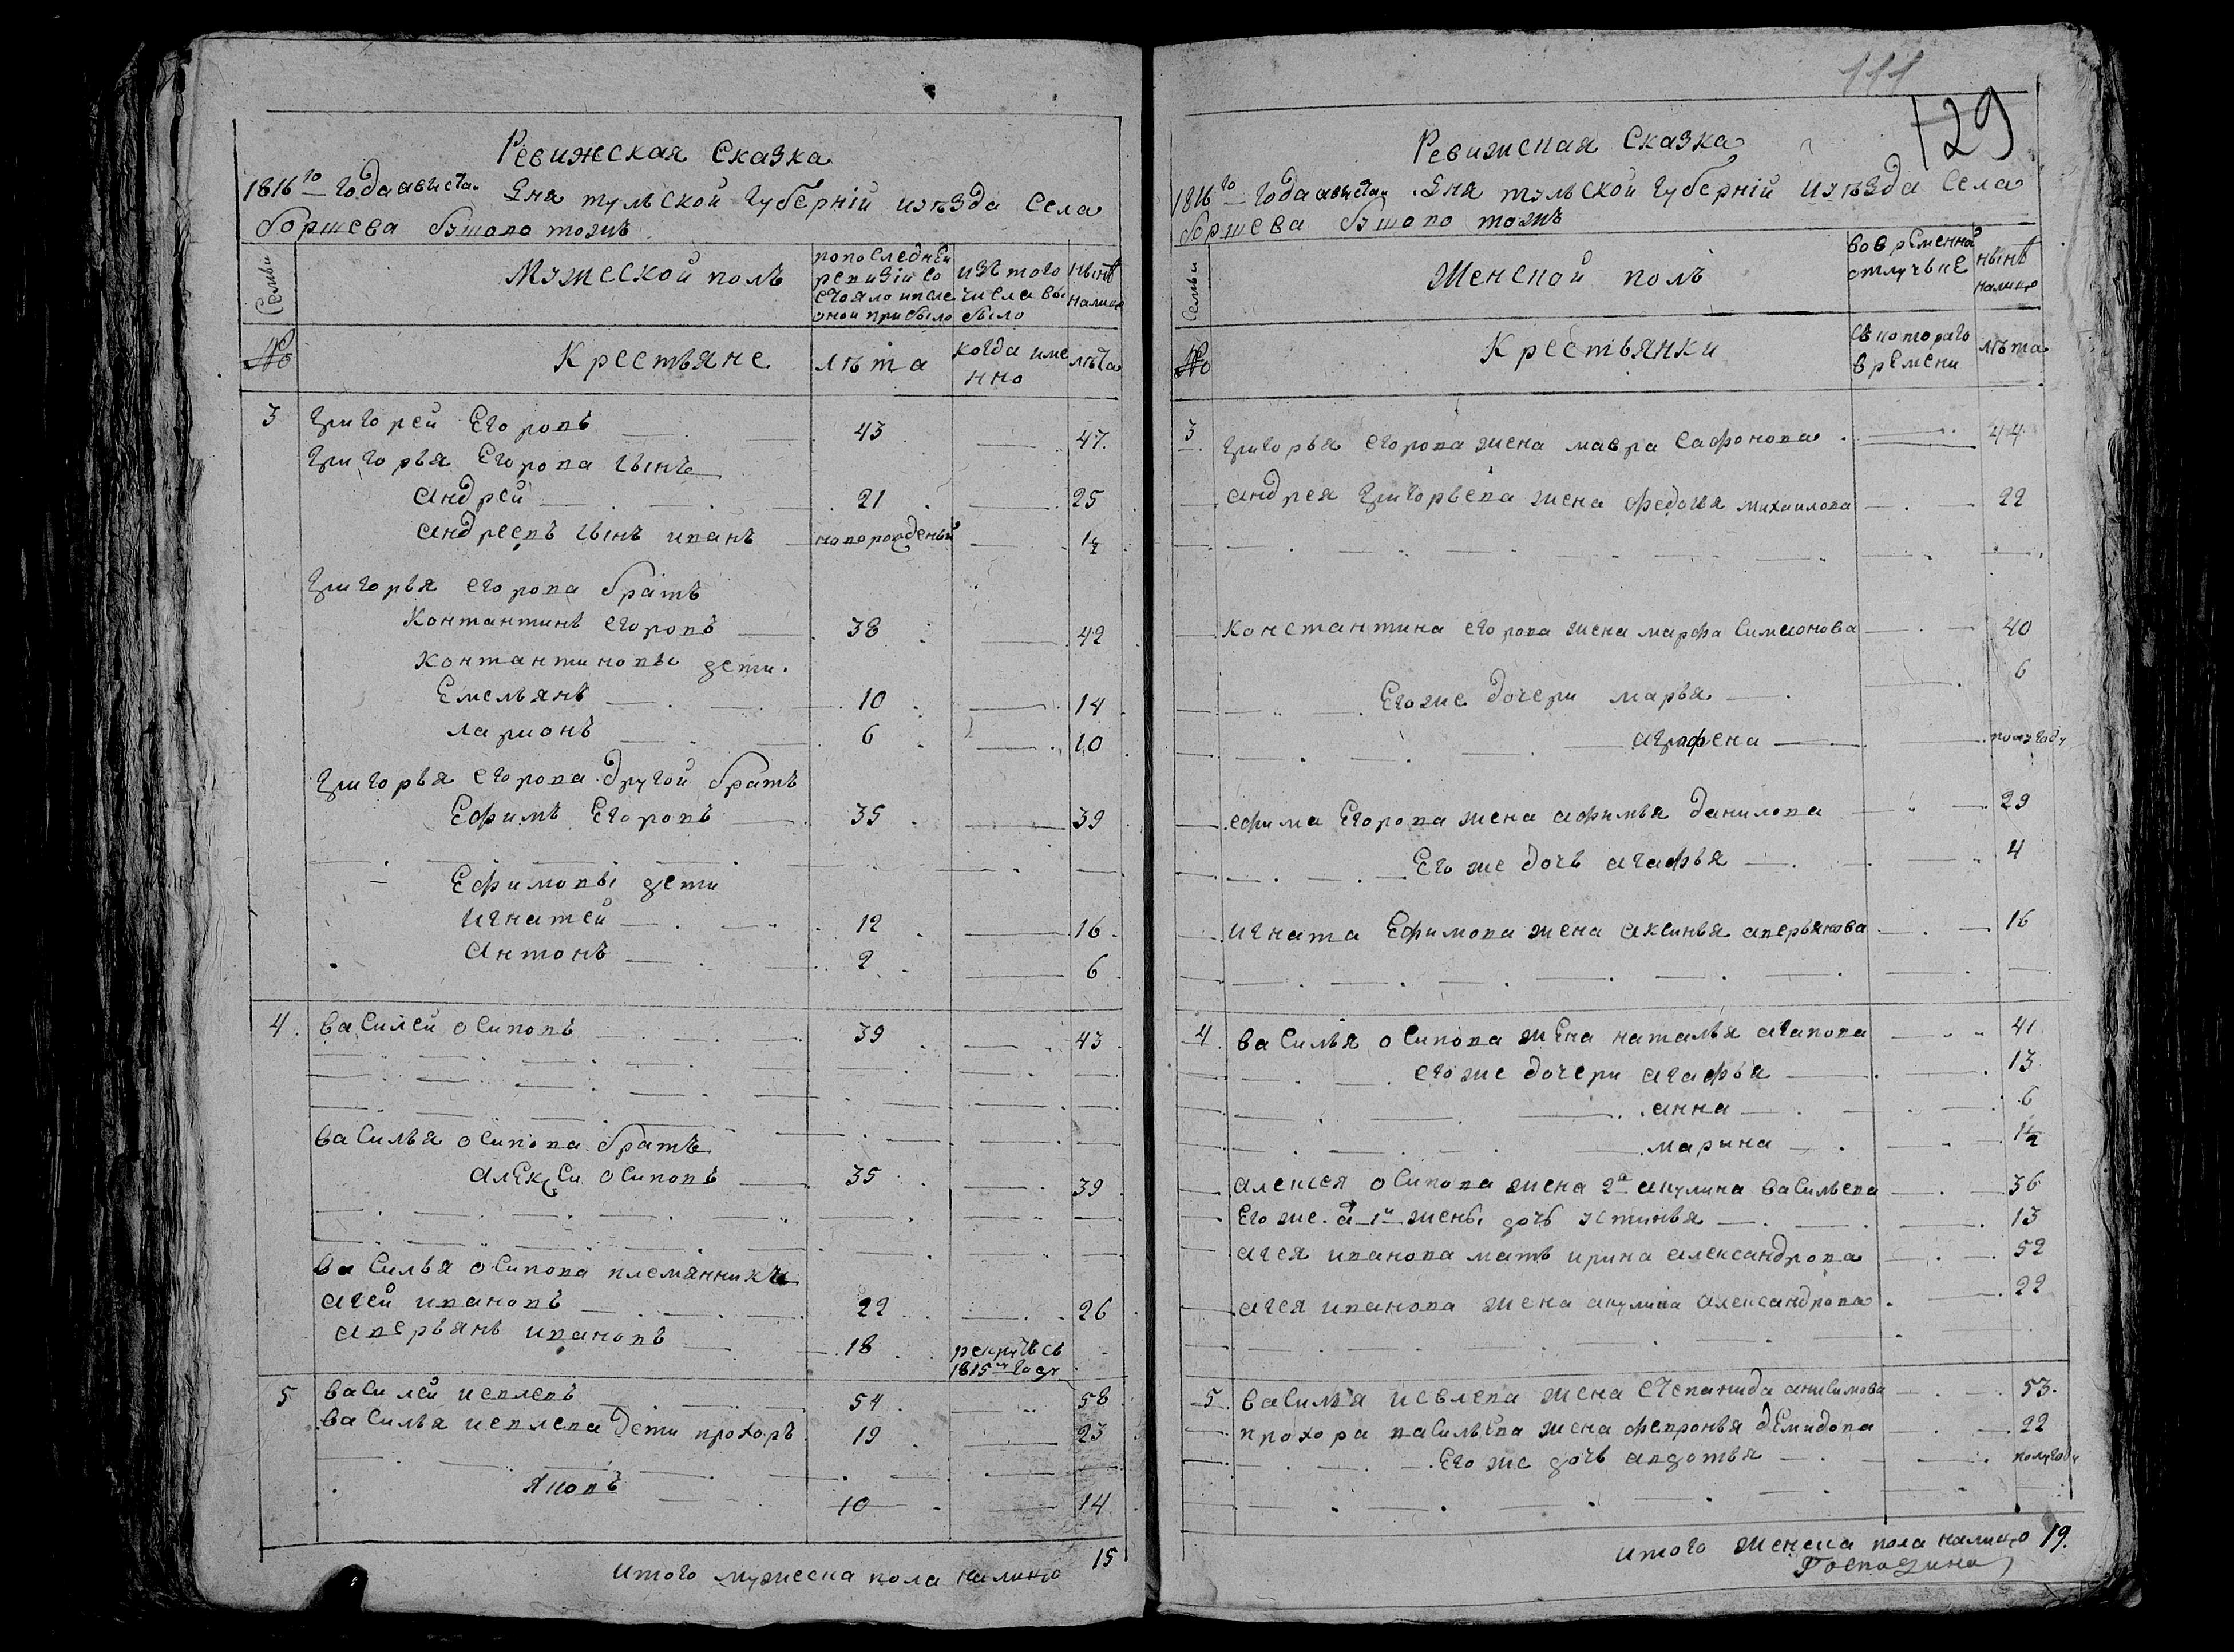 Ревижская Сказка
1816го года августа дня тульской Губерніи уѣзда Села
боршева бутово тожъ
Семьи
Мужеской полъ
попоследней
ревизіи со
стояло и после
оной прибыло
изъ того
числа вы
было
нынѣ
налицо
№
Крестьяне
лѣта
когда име
нно
лѣта
3 Григорей Егоровъ 43 47.
Григорья Егорова сынъ
Андрей 21 25
Андреевъ сынъ иванъ новорожденый 1½
Григорья егорова братъ
Контантинъ егоровъ 38 42
контантиновы дети.
Емельянъ 10 14
ларионъ 6 10
Григорья егорова другой братъ
Ефимъ Егоровъ 35 39
Ефимовы дети
игнатей 12 16
Антонъ 2 6
4. василей осиповъ 39 43
василья осипова братъ
алексей осиповъ 35 39
василья осипова племянники
агей ивановъ 22 26
аверьянъ ивановъ 18 рекрутъ въ
1815м году
5 василей иевлевъ 54 58
василья иевлева дети прохоръ 19 23
яковъ 10 14
итого мужеска пола налицо 15
111
129
Ревижская Сказка
1816го года августа дня тульской Губерніи уѣзда Села
боршева бутово тожъ
Семьи
Женской полъ
вовременной
отлучьке
нынѣ
налицо
№
Крестьянки
съкотораго
времени
лѣта
3 Григорья егорова жена мавра Сафонова 44
андрея Григорьева жена федосья михаилова 22
константина егорова жена марфа Симионова 40
Егоже дочери марья 6
аграфена полугоду
ефима Егорова жена афимья данилова 29
Его же дочь агафья 4
игната Ефимова жена аксинья аверьянова 16
4. василья осипова жена наталья агапова 41
его же дочери агафья 13
анна 6
марина 1½
алексея осипова жена 2я акулина васильева 36
Его же от 1й жены дочь устинья 13
агея иванова мать ирина александрова 52
агея иванова жена акулина александрова 22
5. василья иевлева жена степанида анисимова 53.
прохора васильева жена февронья демидова 22
Его же дочь авдотья полугоду
итого женска пола налицо 19.
Господина